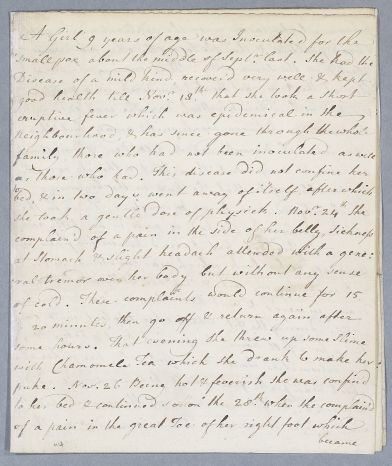 A Girl 9 years of age was Inoculated for the
small pox about the middle of Sept: last. She had the
Disease of a mild kind, recover'd very well & kept
good health till Novr. 18th that she took a short
eruptive fever which was epidemical in the
neighbourhood, & has since gone through the whole
family, those who had not been inoculated as well
as those who had. This disease did not confine her
bed, & in two days went away of itself after which
she took a gentle dose of physick. Novr. 24th she
complain'd of a pain in the side of her belly, Sickness
at Stomach & slight headach attended with a gene-
ral tremor over her body but without any sense
of cold. These complaints would continue for 15
20 minutes, then go off & return again after
some hours. That evening she threw up some Slime
with Chamomela Tea which she drank to make her
puke. Nov. 26 Being hot & feverish she was confin'd
to her bed & continued so on the 28th. when she complain'd
of a pain in the great Toe of her right foot which
became